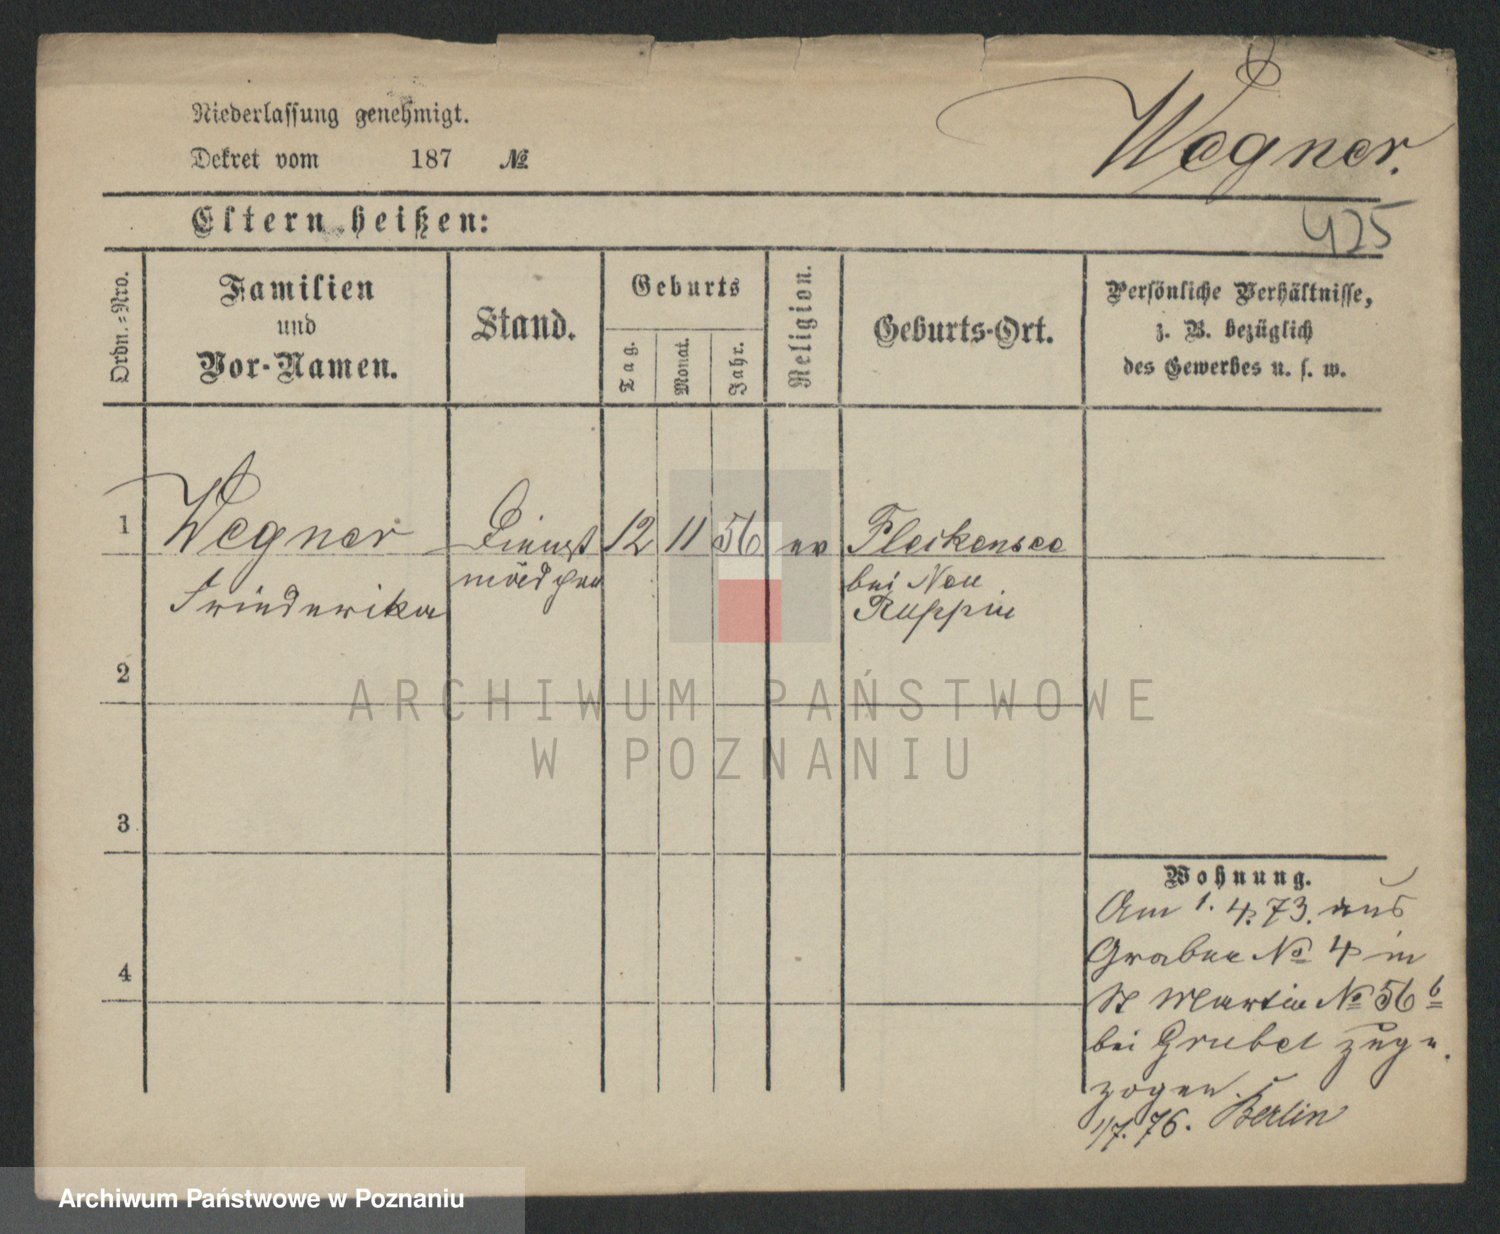 Niederlassung genehmigt.
Dekret vom 187 №
Wegner.
425
Eltern heißen:
Ordn.-Nro.
Familien
und
Vor-Namen.
Stand.
Geburts
Tag.
Monat.
Jahr.
Religion.
Geburts-Ort.
Persönliche Verhältnisse,
z. B. bezüglich
des Gewerbes u. s. w.
1 Wegner Dienst 12 11 56 ev Fleckensee
Friederika mädchen bei Neu
Ruppin
2
3
4
ARCHIWUM PAŃSTWOWE
W POZNANIU
Wohnung.
Am 1. 4. 73. aus
Graben № 4 in
St Martin № 56 b
bei Grubel zuge
zogen.
1/7. 76. Berlin
Archiwum Państwowe w Poznaniu